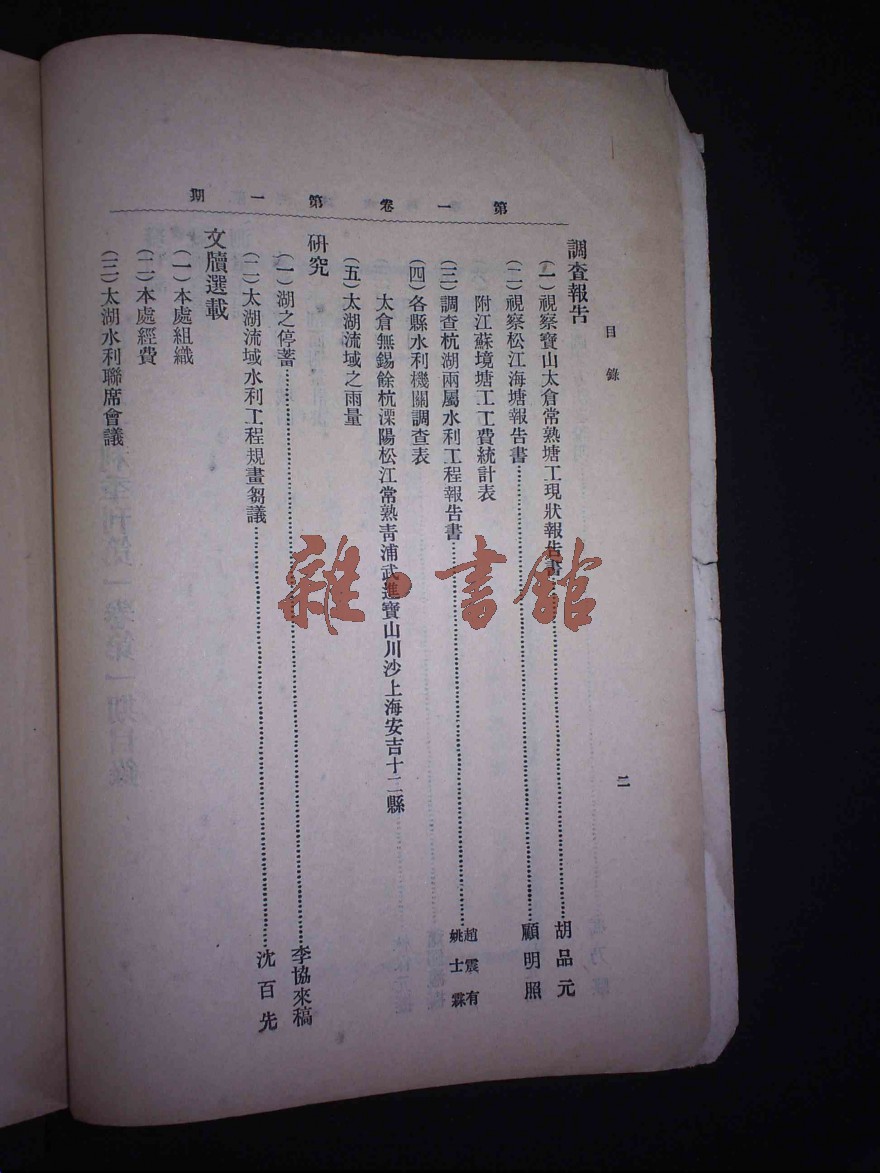 目錄 二
第一卷第一期
調查報告
(一)視察寶山太倉常熟塘工現狀報告書 胡品元
(二)視察松江海塘報告書 顧明照
附江蘇境塘工工費統計表
(三)調查杭湖兩屬水利工程報告書 趙震有 姚士霖
(四)各縣水利機關調查表
太倉無錫餘杭溧陽松江常熟靑浦武進寶山川沙上海安吉十二縣
(五)太湖流域之雨量
研究
(一)湖之停蓄 李協來稿
(二)太湖流域水利工程規畫芻議 沈百先
文牘選載
(一)本處組織
(二)本處經費
(三)太湖水利聯席會議
雜·書館